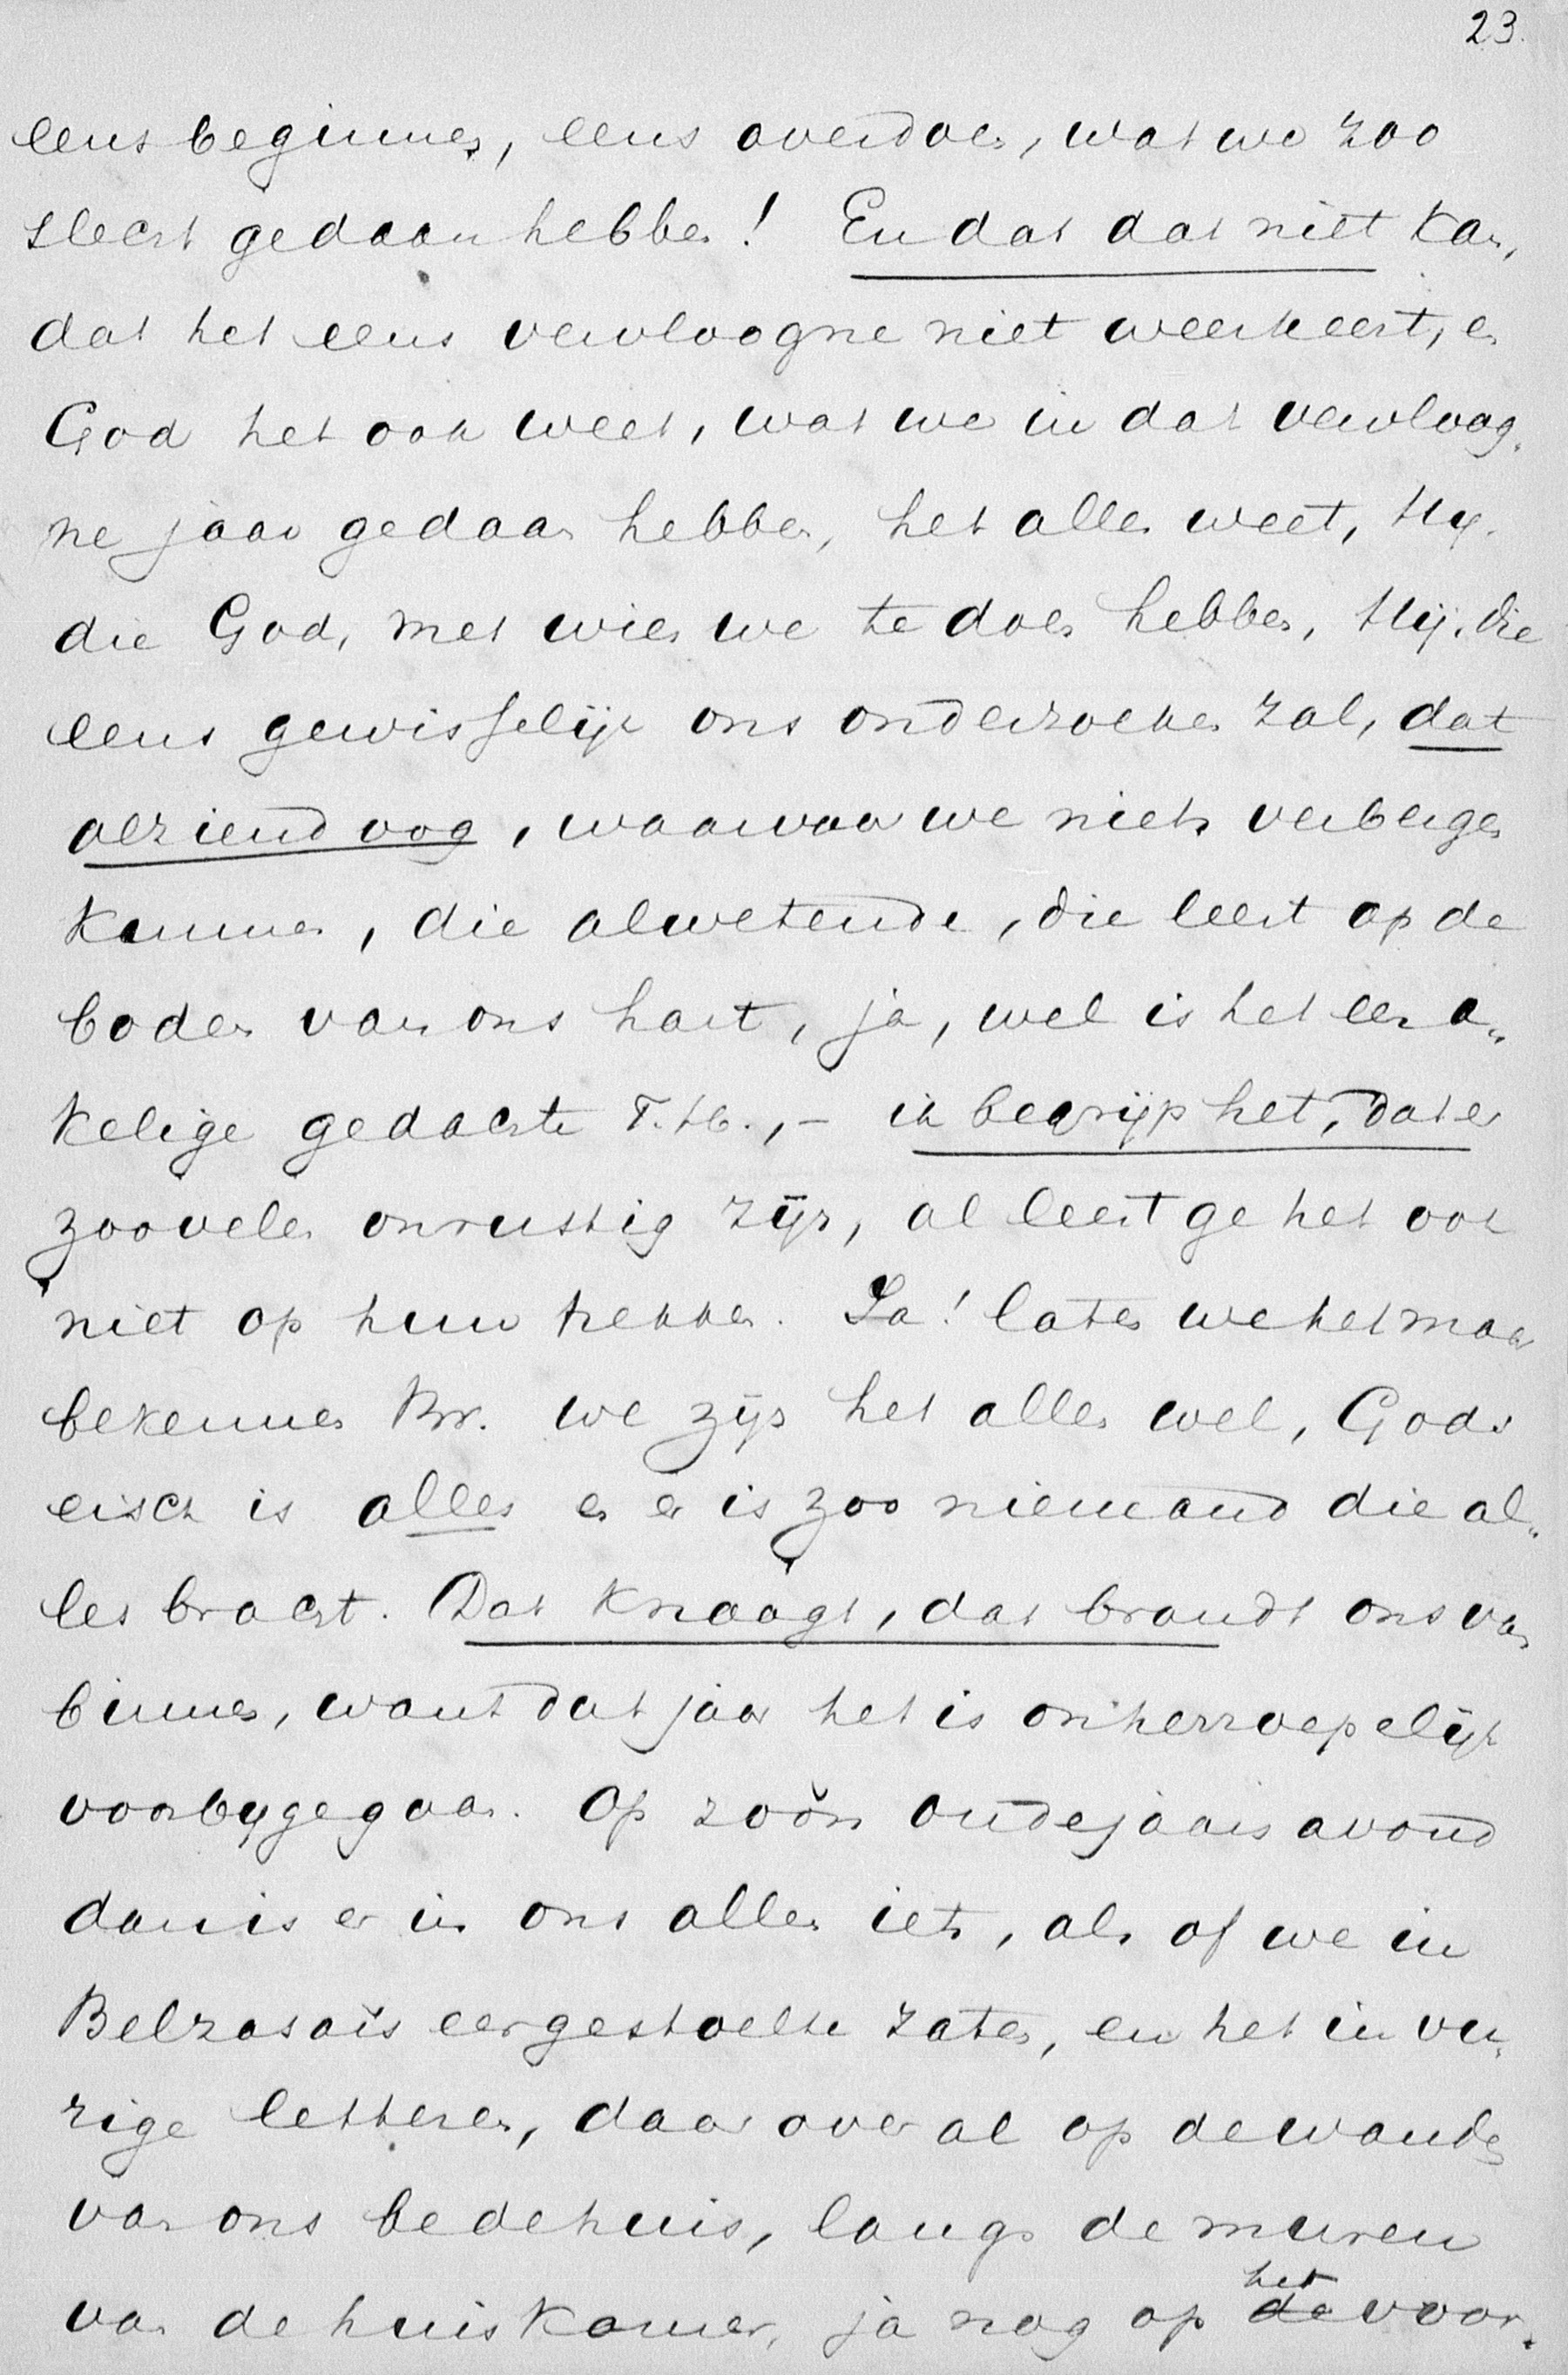 23.
eens beginnen, eens overdoen, wat we zoo
slecht gedaan hebben! En dat dat niet kan,
dat het eens vervloogne niet weerkeert, en
God het ook weet, wat we in dat vervloog„
ne jaar gedaan hebben, het alles weet, Hij.
die God, met wien we te doen hebben, Hij, die
eens gewisselijk ons onderzoeken zal, dat
alziend oog, waarvoor we niets verbergen
kunnen, die alwetende, die leest op de
bodem van ons hart, ja, wel is het een a„
kelige gedachte T. H., – ik begrijp het, dat er
zoovelen onrustig zijn, al leest ge het ook
niet op hun trekken. Ja! laten we het maar
bekennen Br. we zijn het allen wel, Gods
eisch is alles en er is zoo niemand die al„
les bracht. Dat knaagt, dat brandt ons van
binnen, want dat jaar het is onherroepelijk
voorbijgegaan. Op zoo'n oudejaars avond
dan is er in ons allen iets, als of we in
Belzasars eergestoelte zaten, en het in vu„
rige letteren, daar over al op de wanden
van ons bedehuis, langs de muren
van de huiskamer, ja nog op de het voor„